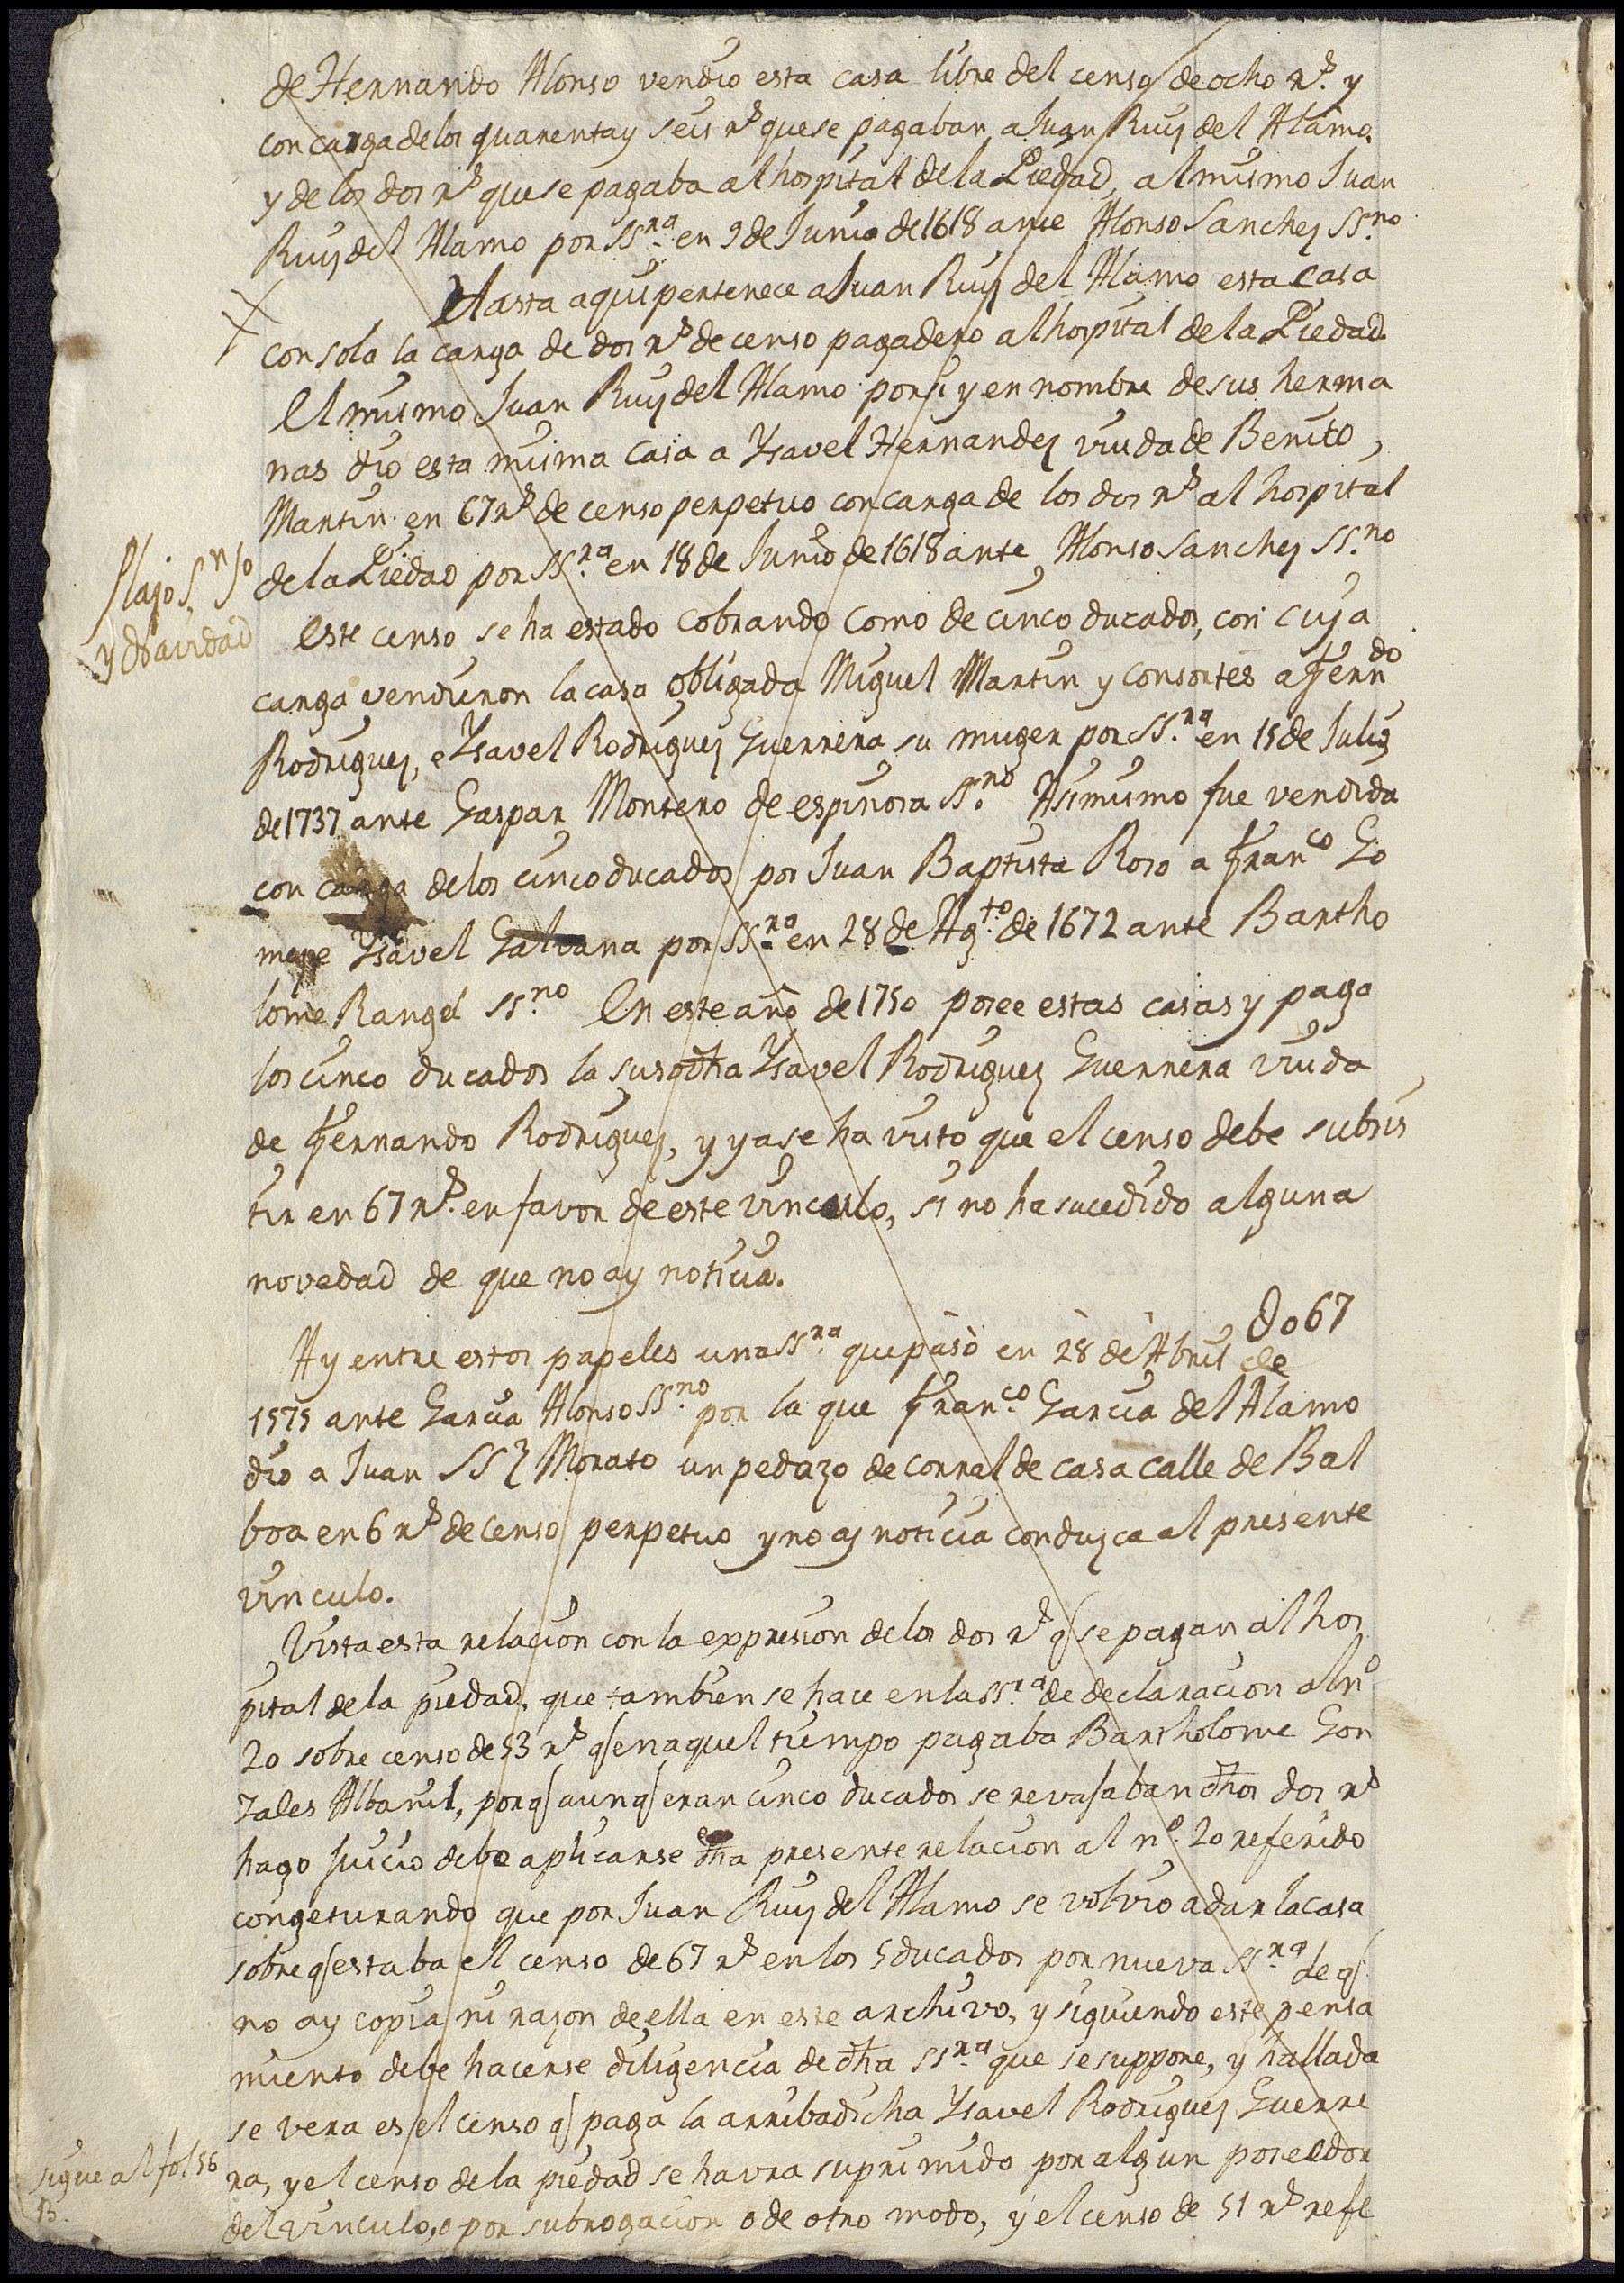 de Hernando Alonso vendio esta casa libre del censo de ocho rs. y
con carga de los quarenta y seis rs que se pagaban a Juan Ruiz del Alamo
y de los dos rs que se pagaba al hospital de la Piedad, al mismo Juan
Ruiz del Alamo por ssra. en 9 de Junio de 1618 ante Alonso Sanchez ssno.
Hasta aqui pertenece a Juan Ruiz del Alamo esta casa
con sola la carga de dos rs de censo pagadero al hospital de la Piedad.
El mismo Juan Ruiz del Alamo por si y en nombre de sus herma
nas dio esta misma casa a Ysavel Hernandez viuda de Benito
Martin en 67 rs de censo perpetuo con carga de los dos rs al hospital
de la Piedad por ssra. en 18 de Junio de 1618 ante Alonso Sanchez ssno.
este censo se ha estado cobrando como de cinco ducados, con cuya
carga vendieron la casa obligada Miguel Martin y consortes a Ferndo
Rodriguez, e Ysavel Rodriguez Guerrera su muger por ssra. en 15 de Julio
de 1737 ante Gaspar Montero de espinosa ssno. Asimismo fue vendida
con carga de los cinco ducados por Juan Baptista Roso a Franco Go
Ysavel Galvana por ssra. en 28 de Agto. de 1672 ante Bartho
lome Rangel ssno. En este año de 1750 posee estas casas y paga
los cinco ducados la susodha Ysavel Rodriguez Guerrera viuda
de Fernando Rodriguez, y ya se ha visto que el censo debe subsis
tir en 67 rs. en favor de este vinculo, si no ha sucedido alguna
novedad de que no ay noticia.
Do 67
Ay entre estos papeles una ssra. que pasò en 28 de Abril de
1575 ante Garcia Alonso ssno. por la que Franco. Garcia del Alamo
dio a Juan SSz Morato un pedazo de corral de casa calle de Bal
boa en 6 rs de censo perpetuo y no ay noticia conduzca al presente
vinculo.
Vista esta relacion con la expresion de los dos rs q se pagan al hos
pital de la piedad, que tambien se hace en la ssra. de declaracion al no
20 sobre censo de 53 rs q en aquel tiempo pagaba Bartholome Gon
zales Albañil, porq aunq eran cinco ducados se revasaban dhos dos rs
hago juicio debe aplicarse dha presente relacion al no. 20 referido
congeturando que por Juan Ruiz del Alamo se volvio a dar la casa
sobre q estaba el censo de 67 rs en los 5 ducados por nueva ssra. de q
no ay copia ni razon de ella en este archivo, y siguiendo este pensa
miento debe hacerse diligencia de dha ssra. que se suppone, y hallada
se vera es el censo q paga la arribadicha Ysavel Rodriguez Guerre
ra, y el censo de la piedad se havra suprimido por algun poseedor
del vinculo, o por subrogacion o de otro modo, y el censo de 51 rs refe
sigue al fol 56
B.